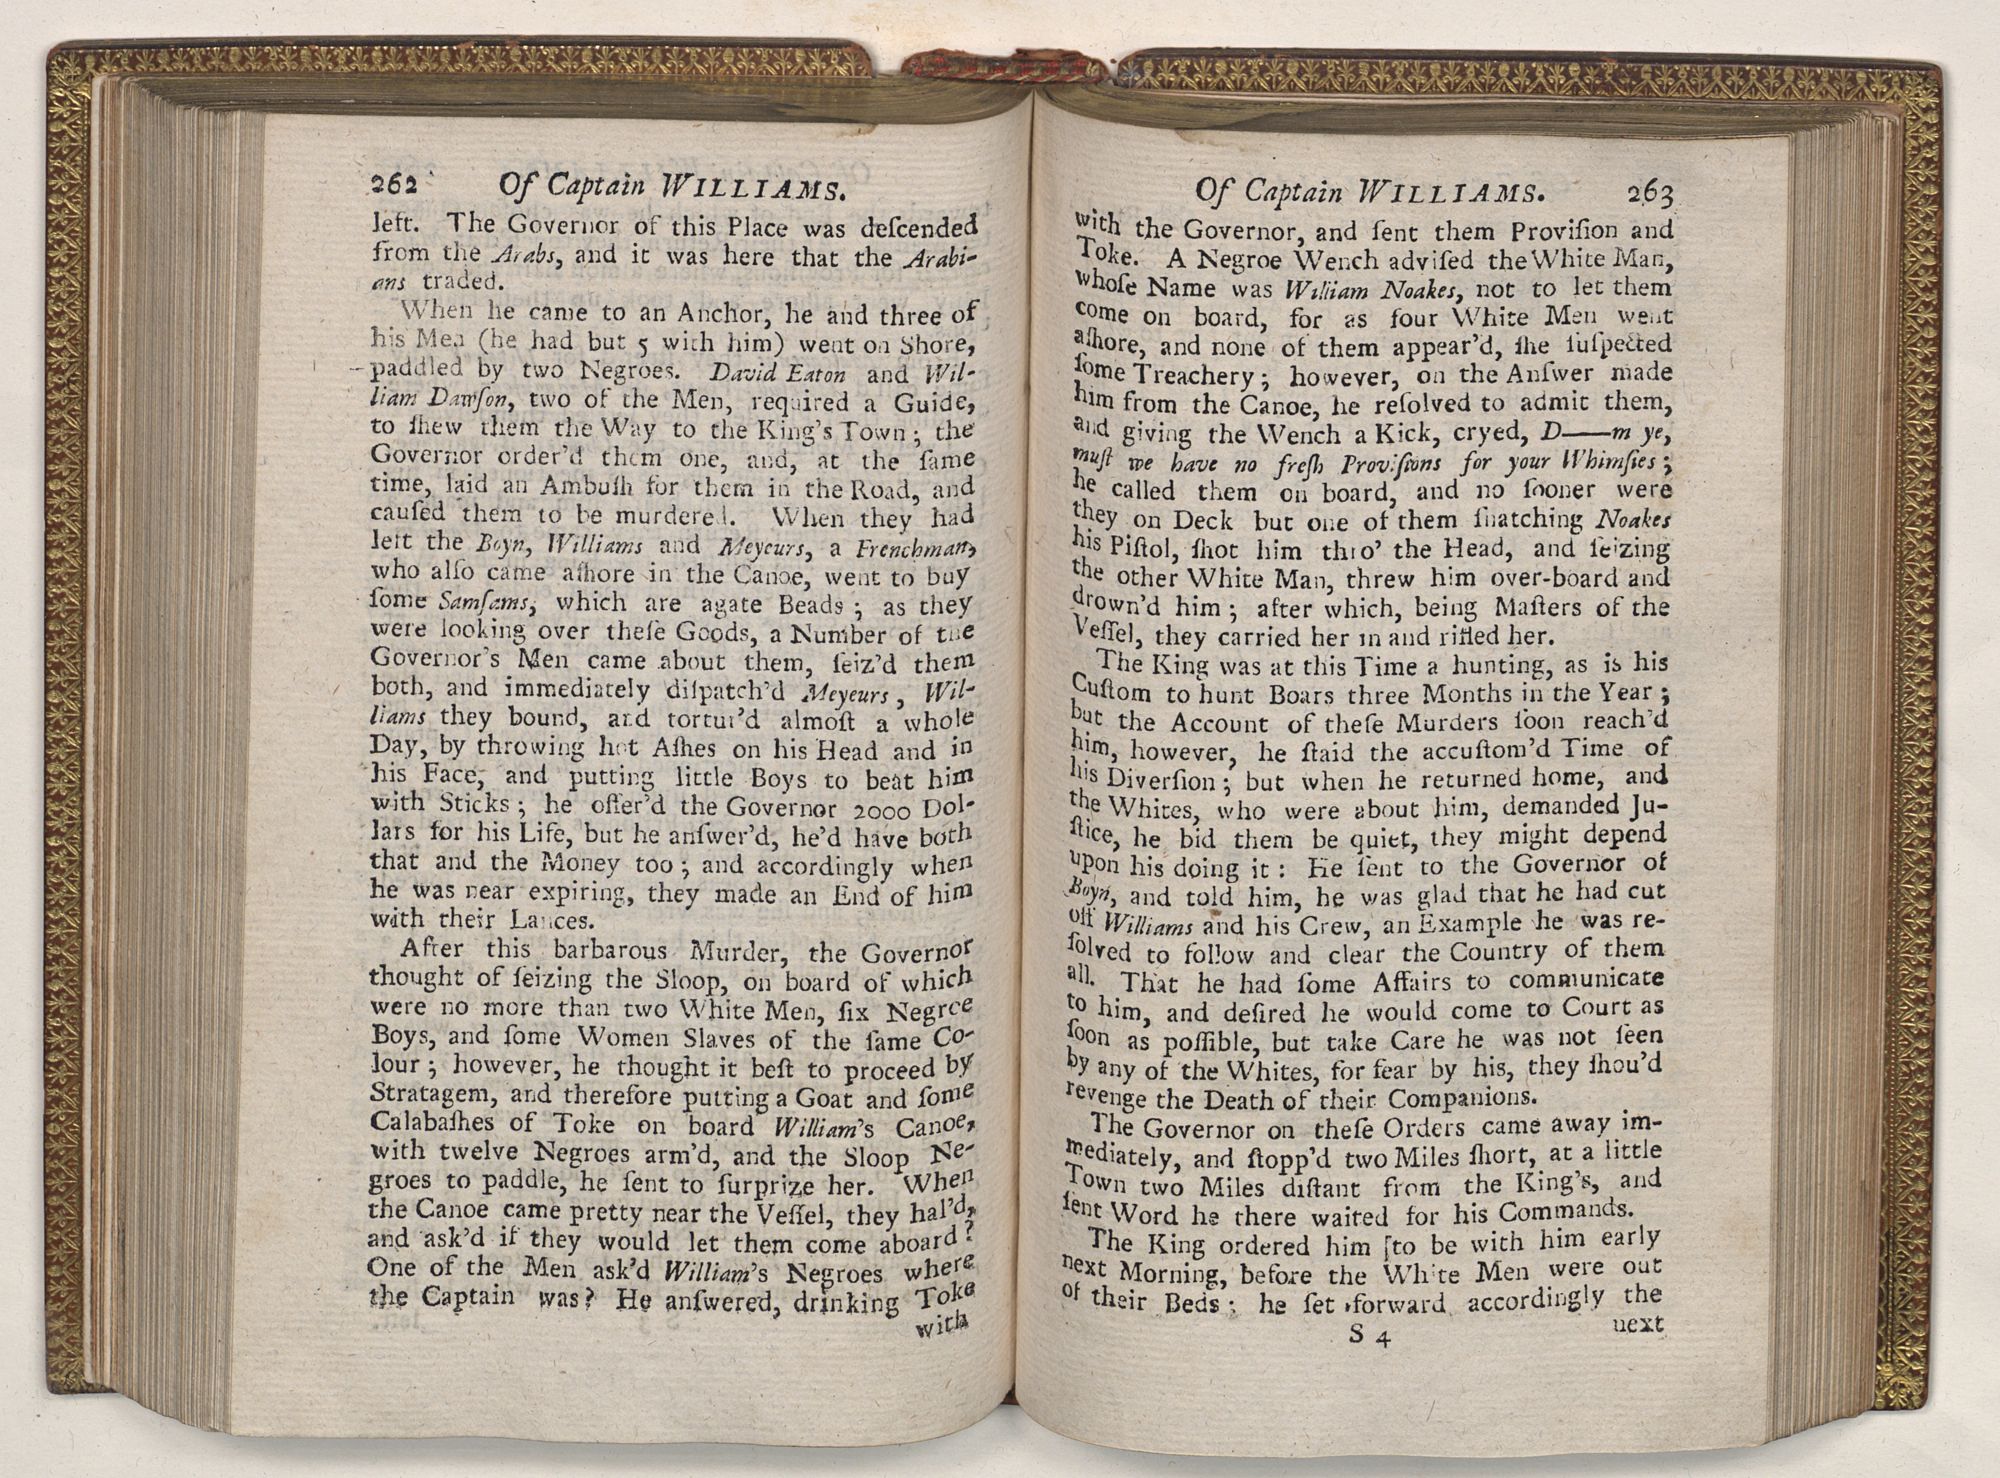 262 Of Captain WILLIAMS.
left. The Governor of this Place was deſcended
from the Arabs, and it was here that the Arabi-
ans traded.
When he came to an Anchor, he and three of
his Men (he had but 5 with him) went on Shore,
paddled by two Negroes. David Eaton and Wil-
liam Dawſon, two of the Men, required a Guide,
to ſhew them the Way to the King's Town; the
Governor order'd them one, and, at the ſame
time, laid an Ambuſh for them in the Road, and
cauſed them to be murdered. When they had
left the Boyn, Williams and Meyeurs, a Frenchman,
who alſo came aſhore in the Canoe, went to buy
ſome Samſams, which are agate Beads; as they
were looking over theſe Goods, a Number of the
Governor's Men came about them, ſeiz'd them
both, and immediately diſpatch'd Meyeurs, Wil-
liams they bound, and tortur'd almoſt a whole
Day, by throwing hot Aſhes on his Head and in
his Face, and putting little Boys to beat him
with Sticks; he offer'd the Governor 2000 Dol-
lars for his Life, but he anſwer'd, he'd have both
that and the Money too; and accordingly when
he was near expiring, they made an End of him
with their Lances.
After this barbarous Murder, the Governor
thought of ſeizing the Sloop, on board of which
were no more than two White Men, ſix Negroe
Boys, and ſome Women Slaves of the ſame Co-
lour; however, he thought it beſt to proceed by
Stratagem, and therefore putting a Goat and ſome
Calabaſhes of Toke on board William's Canoe,
with twelve Negroes arm'd, and the Sloop Ne-
groes to paddle, he ſent to ſurprize her. When
the Canoe came pretty near the Veſſel, they hal'd,
and ask'd if they would let them come aboard?
One of the Men ask'd William's Negroes where
the Captain was? He anſwered, drinking Toke
with
Of Captain WILLIAMS. 263
with the Governor, and ſent them Proviſion and
Toke. A Negroe Wench adviſed the White Man,
whoſe Name was William Noakes, not to let them
come on board, for as four White Men went
aſhore, and none of them appear'd, ſhe ſuſpected
ſome Treachery; however, on the Anſwer made
him from the Canoe, he reſolved to admit them,
and giving the Wench a Kick, cryed, D——m ye,
muſt we have no freſh Proviſions for your Whimſies;
he called them on board, and no ſooner were
they on Deck but one of them ſnatching Noakes
his Piſtol, ſhot him thro' the Head, and ſeizing
the other White Man, threw him over-board and
drown'd him; after which, being Maſters of the
Veſſel, they carried her in and rifled her.
The King was at this Time a hunting, as is his
Cuſtom to hunt Boars three Months in the Year;
but the Account of theſe Murders ſoon reach'd
him, however, he ſtaid the accuſtom'd Time of
his Diverſion; but when he returned home, and
the Whites, who were about him, demanded Ju-
ſtice, he bid them be quiet, they might depend
upon his doing it: He ſent to the Governor of
Boyn, and told him, he was glad that he had cut
off Williams and his Crew, an Example he was re-
ſolved to follow and clear the Country of them
all. That he had ſome Affairs to communicate
to him, and deſired he would come to Court as
ſoon as poſſible, but take Care he was not ſeen
by any of the Whites, for fear by his, they ſhou'd
revenge the Death of their Companions.
The Governor on theſe Orders came away im-
mediately, and ſtopp'd two Miles ſhort, at a little
Town two Miles diſtant from the King's, and
ſent Word he there waited for his Commands.
The King ordered him [to be with him early
next Morning, before the White Men were out
of their Beds; he ſet forward accordingly the
S 4 next